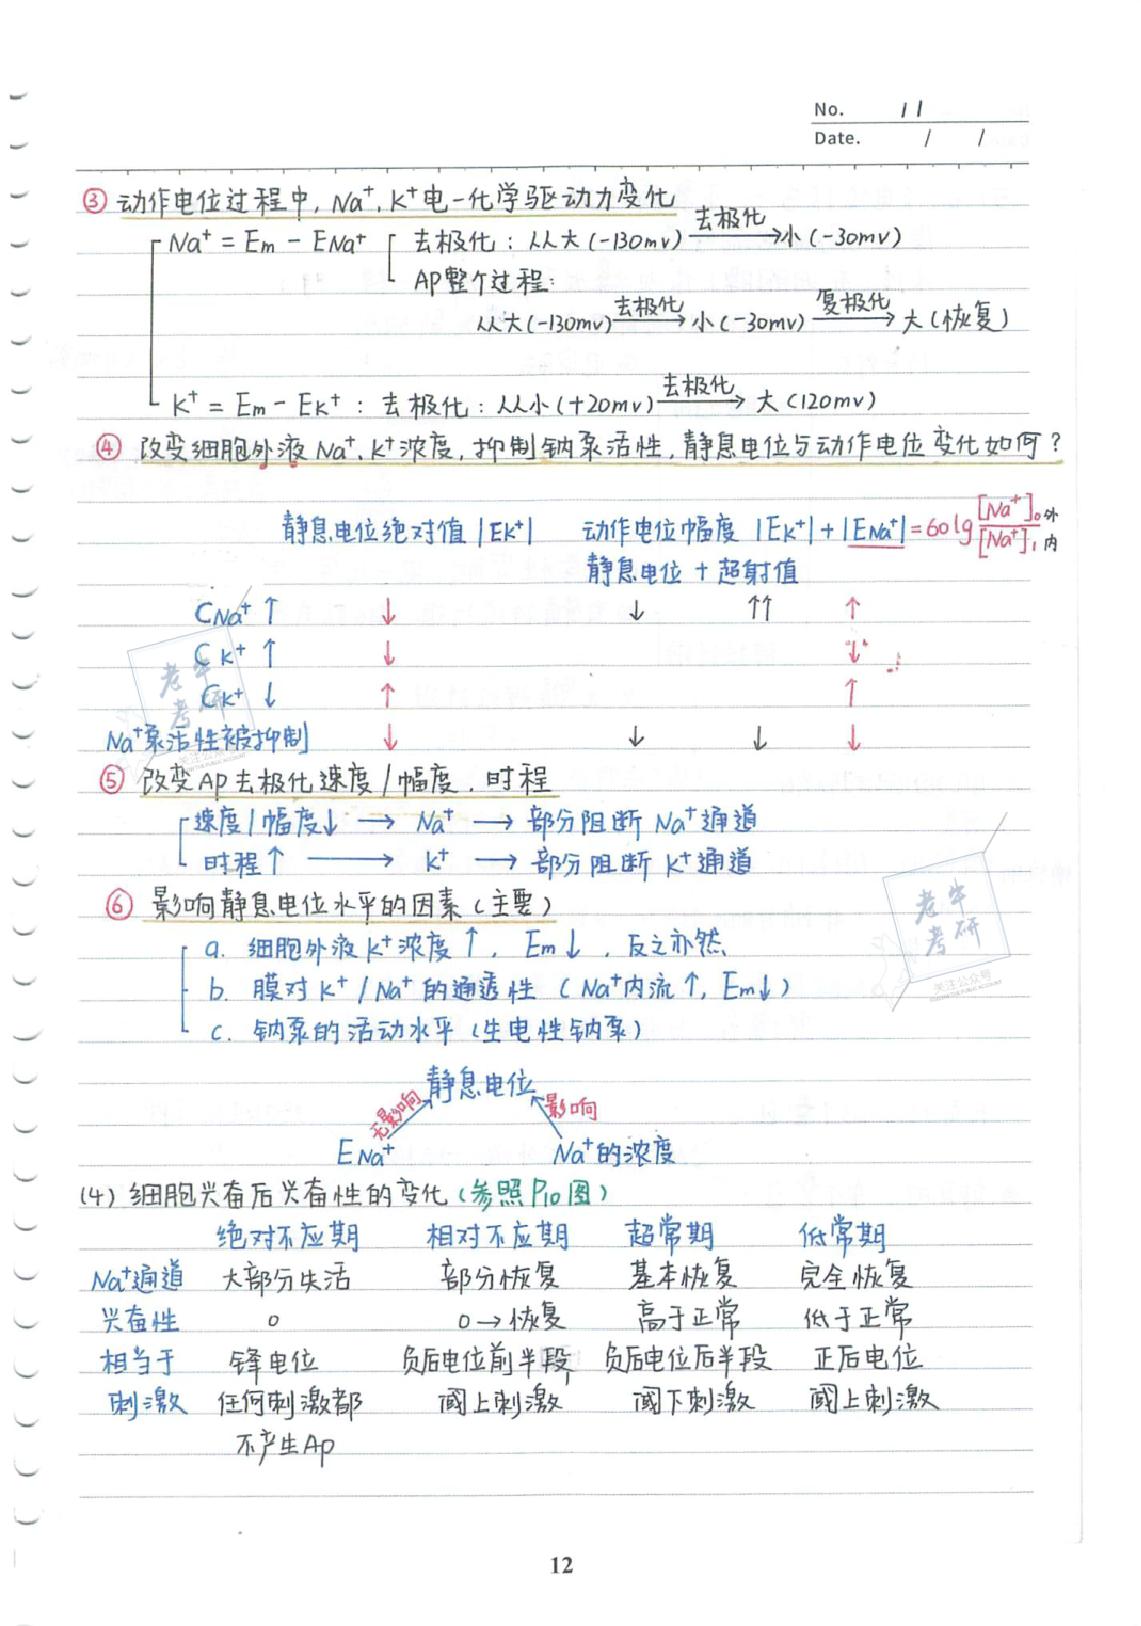 No. 11
Date. / /
③ 动作电位过程中, Na⁺、K⁺电-化学驱动力变化
Na⁺ = Em - ENa⁺ 去极化: 从大(-130mv) 去极化→ 小(-30mv)
AP整个过程:
从大(-130mv) 去极化→ 小(-30mv) 复极化→ 大(恢复)
K⁺ = Em - EK⁺ : 去极化: 从小(+20mv) 去极化→ 大(120mv)
④ 改变细胞外液Na⁺、K⁺浓度, 抑制钠泵活性, 静息电位与动作电位变化如何?
静息电位绝对值 |EK⁺| 动作电位幅度 |EK⁺| + |ENa⁺| = 60lg [Na⁺]o外 / [Na⁺]i内
静息电位 + 超射值
CNa⁺ ↑ ↓ ↓ ↑↑ ↑
CK⁺ ↑ ↓ ↓
CK⁺ ↓ ↑ ↑
Na⁺泵活性被抑制 ↓ ↓ ↓ ↓
⑤ 改变AP去极化速度/幅度、时程
速度/幅度↓ → Na⁺ → 部分阻断Na⁺通道
时程↑ → K⁺ → 部分阻断K⁺通道
⑥ 影响静息电位水平的因素(主要)
a. 细胞外液K⁺浓度↑, Em↓, 反之亦然
b. 膜对K⁺/Na⁺的通透性 (Na⁺内流↑, Em↓)
c. 钠泵的活动水平(生电性钠泵)
静息电位
无影响 影响
ENa⁺ Na⁺的浓度
(4) 细胞兴奋后兴奋性的变化(参照P10图)
绝对不应期 相对不应期 超常期 低常期
Na⁺通道 大部分失活 部分恢复 基本恢复 完全恢复
兴奋性 0 0→恢复 高于正常 低于正常
相当于 锋电位 负后电位前半段 负后电位后半段 正后电位
刺激 任何刺激都 阈上刺激 阈下刺激 阈上刺激
不产生Ap
老牛
考研
关注公众号
老牛
考研
关注公众号
12